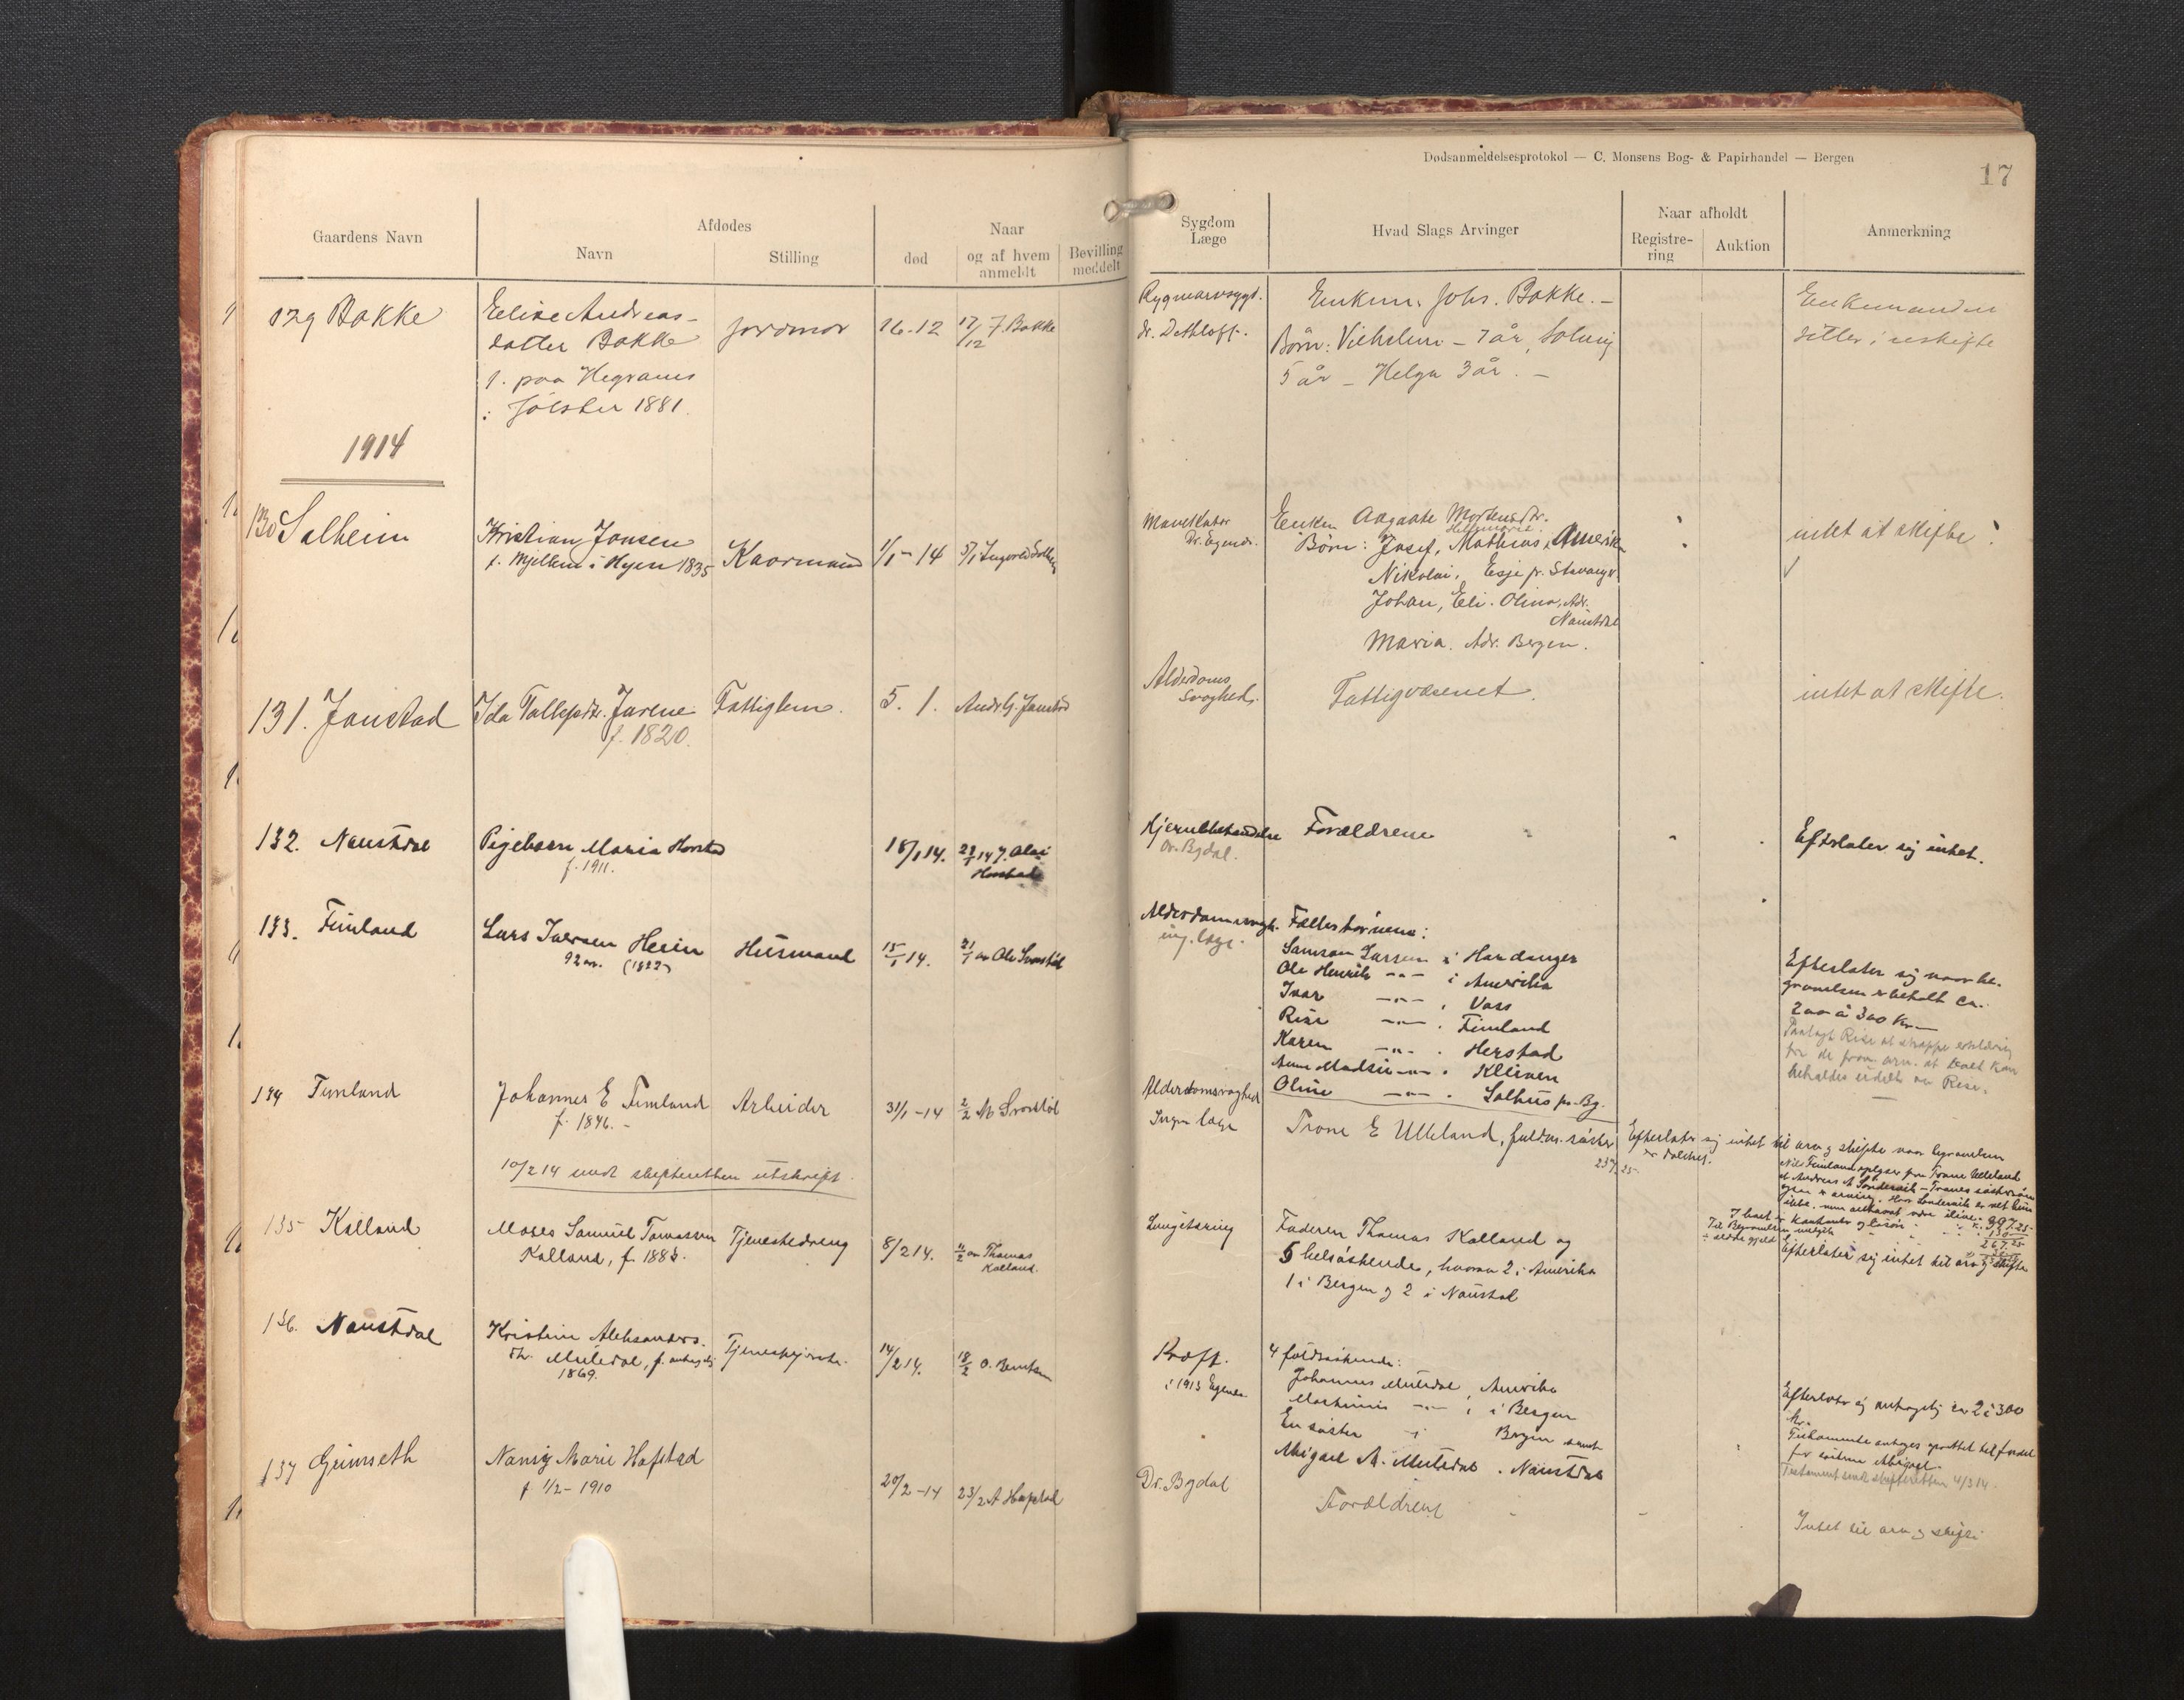 Dødsanmeldelsesprotokol — C. Monsens Bog- & Papirhandel — Bergen
17
Gaardens Navn
Afdødes
Navn
Stilling
Naar
død
og af hvem anmeldt
Bevilling meddelt
Sygdom Læge
Hvad Slags Arvinger
Naar afholdt
Registre-ring
Auktion
Anmerkning
129 Bakke
Eelise Andreas-
datter Bakke
f. paa Hegrenes
i Jølster 1881.
Jordmor
16-12
17/12 J. Bakke
Rygmarvsygd.
dr. Dethloff.
Enkem. Johs. Bakke. —
Børn: Vilhelm — 7 år, Solveig
5 år — Helga 3 år. —
Enkemanden
sitter i uskifte
1914
130 Solheim
Kristian Jonsen
f. Mjellem i Hyen 1835
Kaarmand
1/1 - 14
5/1 Ingvald Solheim
Mavekatar
Dr. Egenæs.
Enken Aagaate Mortensdtr.
Børn: Josef, Mathias, Amerika
Nikolai, Esje pr. Stavanger
Johan, Eli. Olina, Adr.
Naustdal
Maria. Adr. Bergen.
intet at skifte.
131. Jonstad
Ida Tollefsdtr. Jarene
f. 1820.
Fattiglem.
5. 1.
Andr G. Jonstad
Alderdoms
svaghed.
Fattigvæsenet.
intet at skifte.
132. Naustdal
Pigebarn Maria Horstad
f. 1911.
18/1 14.
22/1 14 J. Olai
Horstad
Hjernebetændelse
Dr. Bydal.
Forældrene
Efterlater sig intet.
133. Fimland
Lars Iversen Heien
92 aar. (1822)
Husmand
15/1 14.
21/1 av Ole Svortdøl
Alderdomssvagh.
ing. læge.
Fællesbørnene:
Samson Larsen i Hardanger
Ole Henrik —"— i Amerika
Ivar —"— i Voss
Rise —"— . Fimland
Karen —"— . Herstad
Anne Madsie —"— . Kleiven
Oline —"— . Salhus pr. Bg.
Efterlater sig naar be-
gravelsen er betalt ca.
200 à 300 Kr.—
Paalagt Rise at skaffe erklæring
fra de fravær. arv. at boet kan
beholdes udelt av Rise.
134 Fimland
Johannes E Fimland
f. 1846. -
Arbeider
31/1 - 14
2/2 M Svortdøl
Alderdomssvaghed
Ingen læge
Trone E Ulleland, fuld.m. søster
Efterlater sig intet til arv og skifte naar begravelsen
er bekostet.
Nils Fimland oplyser for Trone Ulleland
at Andreas A Sondervik — Trones søstersøn
ogsaa er arving.
10/2 14 sendt skifteretten utskrift.
397.25
130
267.25
135 Kalland
Moses Samuel Tomassen
Kalland, f. 1883.
Tjenestedreng
8/2 14.
11/2 av Thomas
Kalland.
Lungetæring
Faderen Thomas Kalland og
5 helsøskende, hvorav 2 i Amerika
1 i Bergen og 2 i Naustdal
Efterlater sig intet til arv og skifte
136. Naustdal
Kristine Aleksanders-
dtr. Muledal, f. antagelig
1869.
Tjenestepige
14/2 14.
18/2 O. Berntsen
Kræft.
i 1913 Egenæs
4 fuldsøskende:
Johannes Muledal, Amerika
Martinus —"— i Bergen
En søster i Bergen samt
Abigael A. Muledal . Naustdal
Efterlater sig antagelig ca 2 à 300
kr.
Testamente antages oprettet til fordel
for søsteren Abigael.
Testament sendt skifteretten 4/3 14.
137 Grimseth
Nansy Marie Hafstad
f 1/2 - 1910
20/2 - 14
23/2 A Hafstad
Dr. Bydal
Forældrene
Intet til arv og skifte